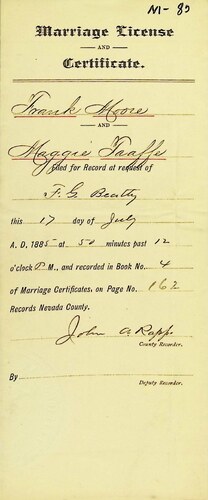 M-85
Marriage License
AND
Certificate.
Frank Moore
AND
Maggie Taaffe
filed for Record at request of
F. G. Beatty
this 17 day of July
A. D. 1885 at 50 minutes past 12
o'clock P M., and recorded in Book No. 4
of Marriage Certificates, on Page No. 162
Records Nevada County.
John A Rapp.
County Recorder.
By
Deputy Recorder.